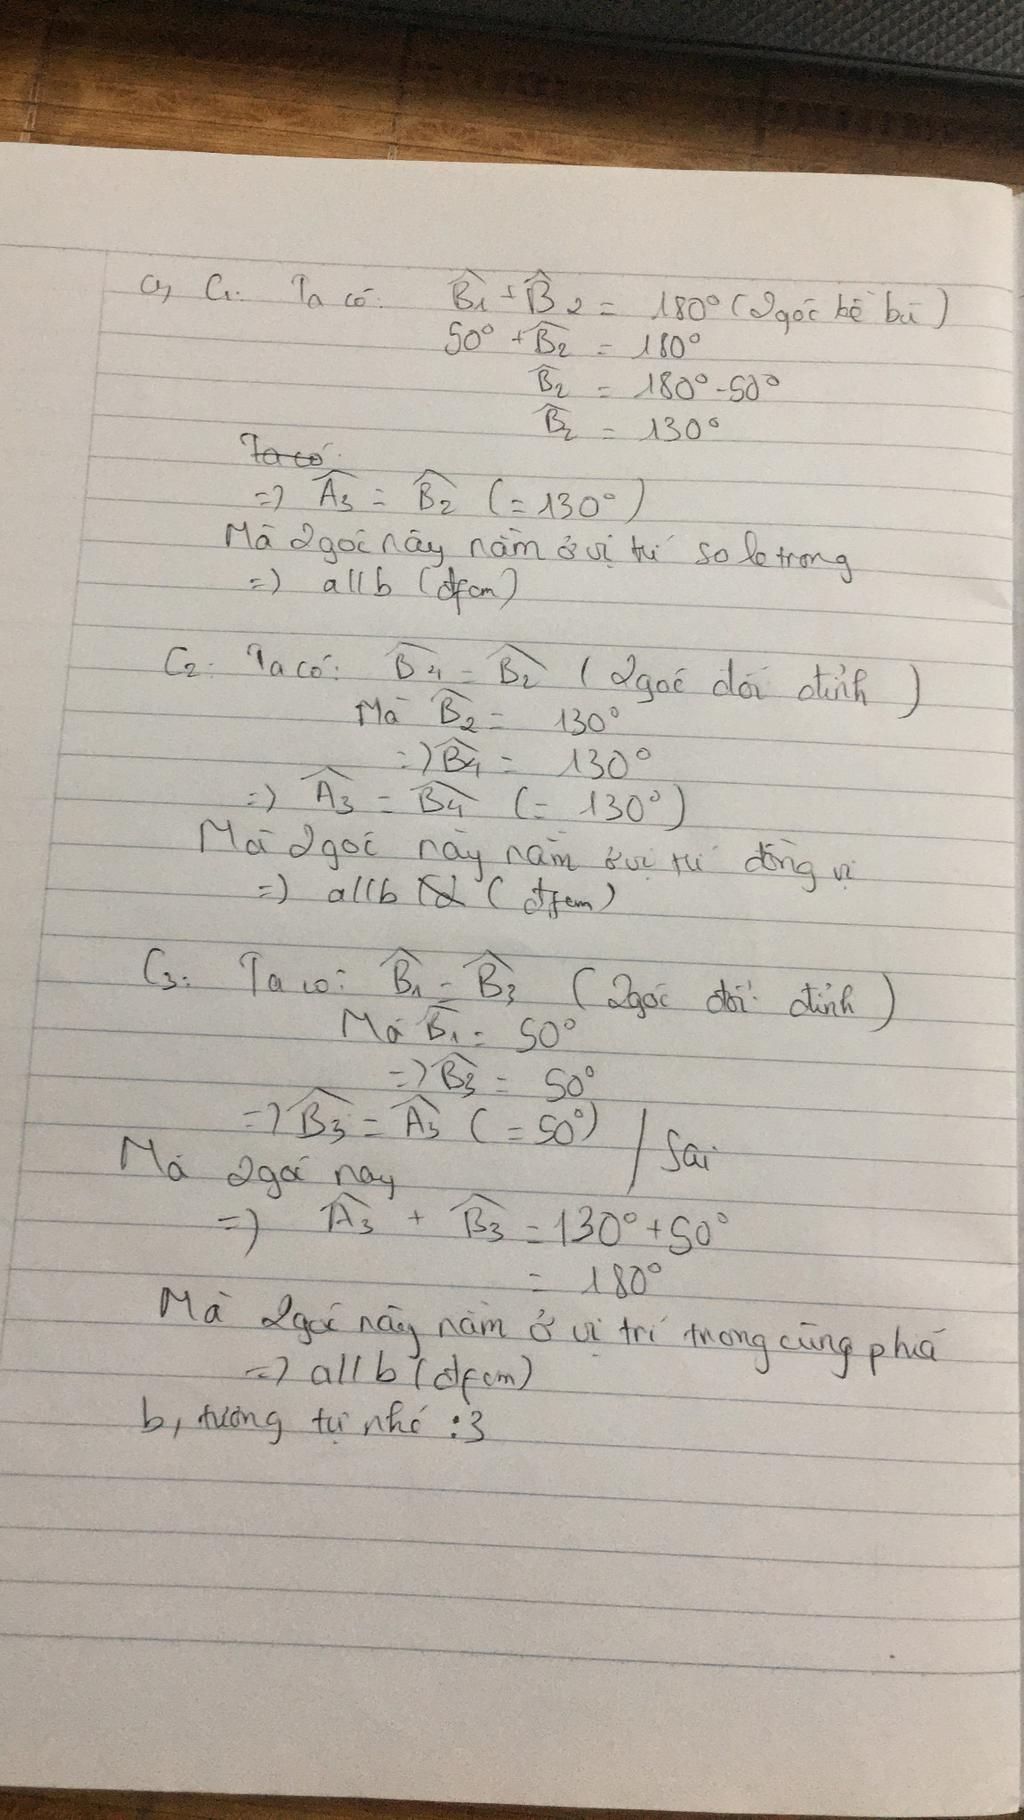 a, C₁: Ta có: B̂₁ + B̂₂ = 180° (2 góc kề bù)
50° + B̂₂ = 180°
B̂₂ = 180° - 50°
B̂₂ = 130°
Ta có:
=> Â₃ = B̂₂ (= 130°)
Mà 2 góc này nằm ở vị trí so le trong
=> a//b (đfcm)
C₂: Ta có: B̂₄ = B̂₂ (2 góc đối đỉnh)
Mà B̂₂ = 130°
=> B̂₄ = 130°
=> Â₃ = B̂₄ (= 130°)
Mà 2 góc này nằm ở vị trí đồng vị
=> a//b (đfcm)
C₃: Ta có: B̂₁ = B̂₃ (2 góc đối đỉnh)
Mà B̂₁ = 50°
=> B̂₃ = 50°
=> B̂₃ = Â₃ (= 50°) / Sai
Mà 2 góc này
=> Â₃ + B̂₃ = 130° + 50°
= 180°
Mà 2 góc này nằm ở vị trí trong cùng phía
=> a//b (đfcm)
b, tương tự nhé :3